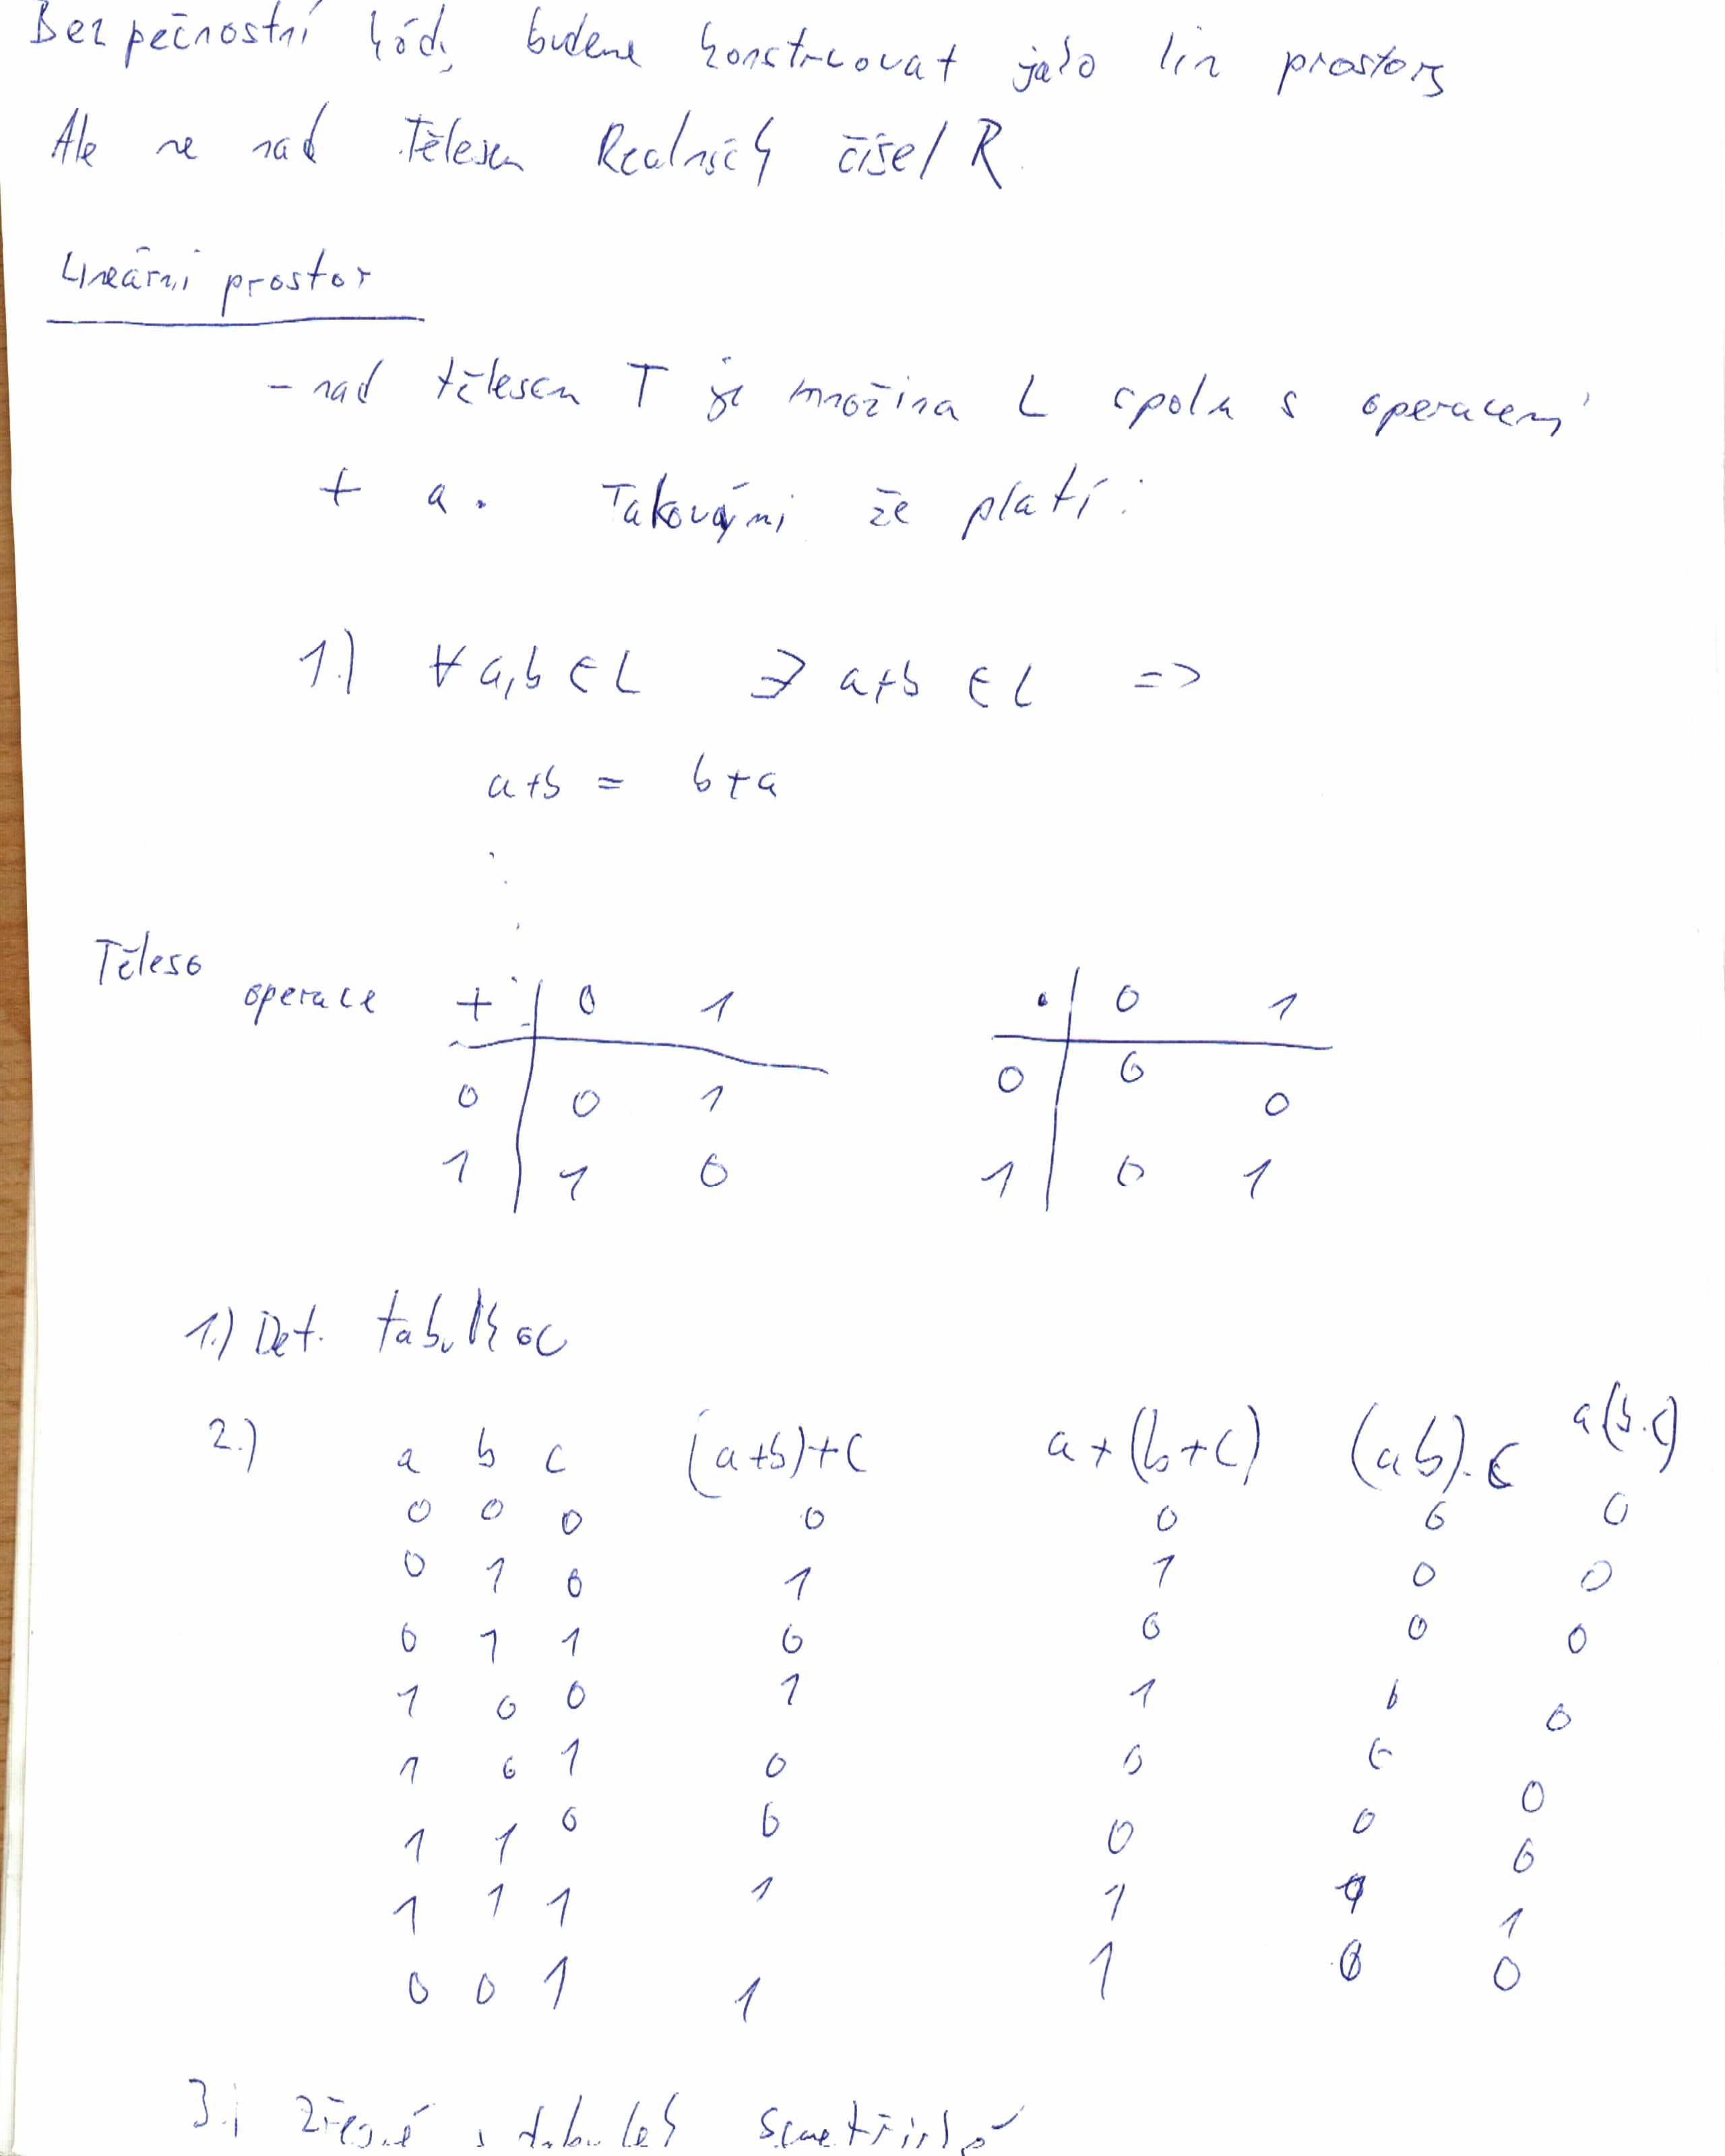 Bezpečnostní kódy budeme konstruovat jako lin prostory
Ale ne nad Tělesem Realných čísel R
Lineární prostor
- nad tělesem T je množina L spolu s operacemi
+ a . Takovými že platí:
1.) ∀ a,b ∈ L ∃ a+b ∈ L =>
a+b = b+a
Těleso
operace + | 0 1 . | 0 1
0 | 0 1 0 | 0 0
1 | 1 0 1 | 0 1
1.) Def. tabulkou
2.) a b c (a+b)+c a+(b+c) (ab).c a(b.c)
0 0 0 0 0 0 0
0 1 0 1 1 0 0
0 1 1 0 0 0 0
1 0 0 1 1 0 0
1 0 1 0 0 0 0
1 1 0 0 0 0 0
1 1 1 1 1 1 1
0 0 1 1 1 0 0
3.) Zřejmé z tabulek